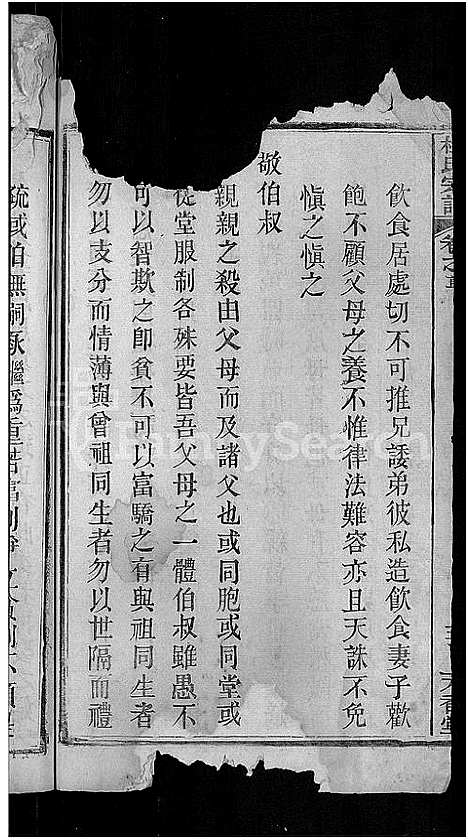 飲食居處切不可推兄諉弟彼私造飲食妻子歡
飽不顧父母之養不惟律法難容亦且天誅不免
慎之慎之
敬伯叔
親親之殺由父母而及諸父也或同胞或同堂或
從堂服制各殊要皆吾父母之一體伯叔雖愚不
可以智欺之即貧不可以富驕之有與祖同生者
勿以支分而情薄與曾祖同生者勿以世隔而禮
FamilySearch